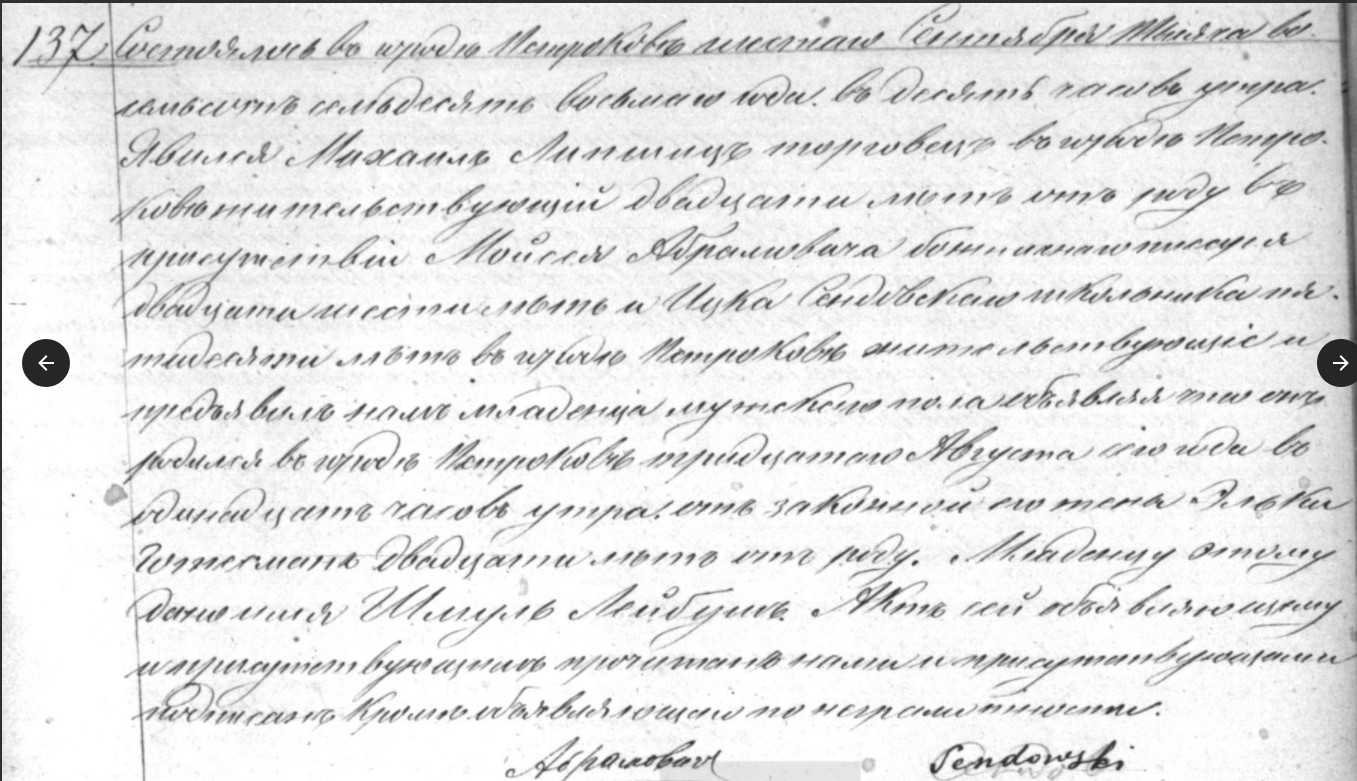 137 Состоялось въ городѣ Петроковѣ шестаго Сентября тысяча во-
семьсотъ семьдесятъ восьмаго года. въ десять часовъ утра.
Явился Михаилъ Липшицъ торговецъ въ городѣ Петро-
ковѣ жительствующій двадцати лѣтъ отъ роду въ
присутствіи Мойсея Абрамовича божничнаго писаря
двадцати шести лѣтъ и Ицка Сендовскаго школьника пя-
тидесяти лѣтъ въ городѣ Петроковѣ жительствующіе и
предъявилъ намъ младенца мужескаго пола объявляя что онъ
родился въ городѣ Петроковѣ тридцатаго Августа сего года въ
одинадцать часовъ утра. отъ законной его жены Эльки
двадцати лѣтъ отъ роду. Младенцу этому
дано имя Шмуль Лейбушъ. Актъ сей объявляющему
и присутствующимъ прочитанъ нами и присутствующими
подписанъ кромѣ объявляющаго по неграмотности.
Абрамовичъ Sendowski